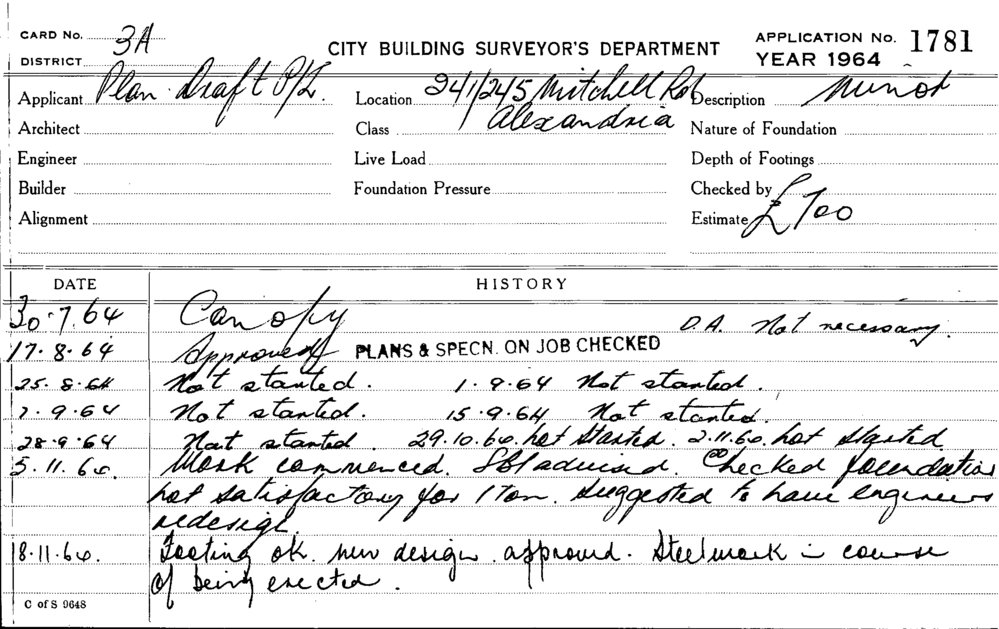 CARD No. 3A
DISTRICT
CITY BUILDING SURVEYOR'S DEPARTMENT
APPLICATION No. 1781
YEAR 1964
Applicant Plan Draft P/L Location 241/245 Mitchell Rd Description Minor
Architect Class Alexandria Nature of Foundation
Engineer Live Load Depth of Footings
Builder Foundation Pressure Checked by
Alignment Estimate £700
DATE HISTORY
30.7.64 Canopy D.A. Not necessary.
17.8.64 Approved PLANS & SPECN. ON JOB CHECKED
25.8.64 Not started. 1.9.64 Not started.
7.9.64 Not started. 15.9.64 Not started.
28.9.64 Not started 29.10.64. not started. 2.11.64. not started
5.11.64. Work commenced. advised. Checked foundation
not satisfactory for 1 ton. Suggested to have engineers
redesign.
18.11.64. Footing ok. new design approved. Steelwork in course
of being erected.
C of S 9648